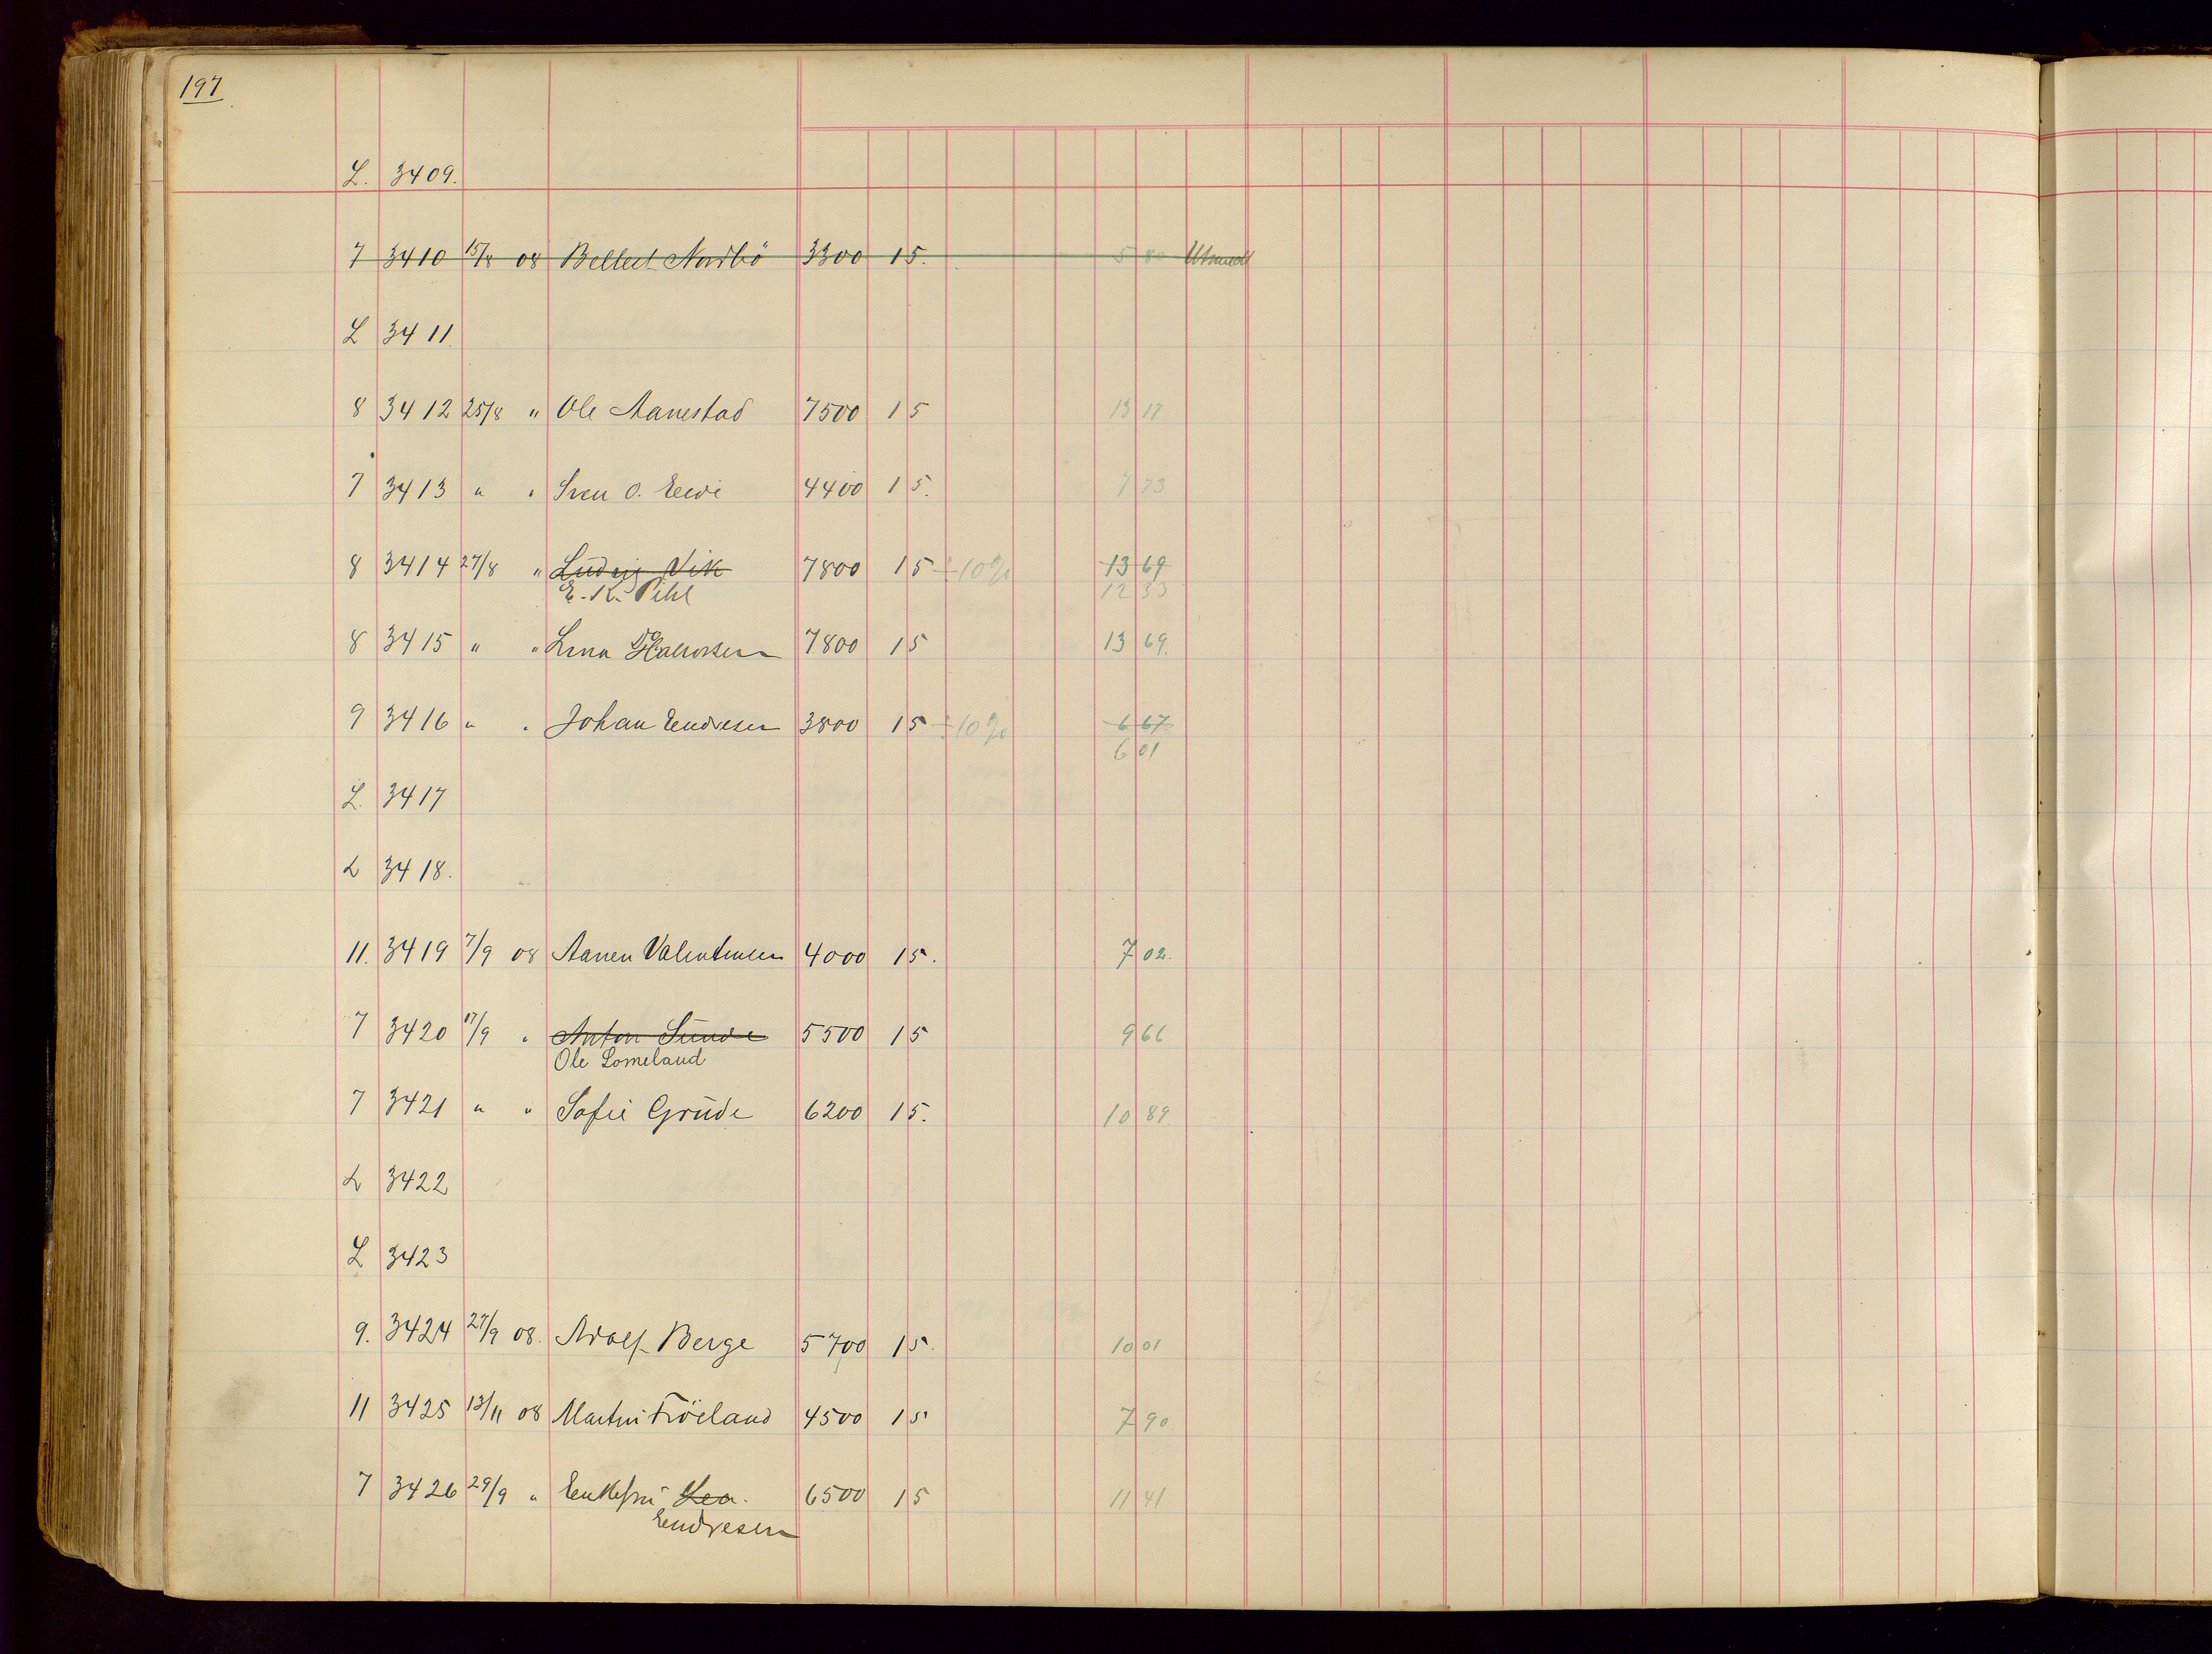 197
L. 3409.
7 3410 15/8 08 Nordbö 3300 15. 5 80 Utmeldt
L 3411.
8 3412 25/8 " Ole Aanestad 7500 15 13 17
7 3413 " " Sven O. 4400 15. 7 73
8 3414 27/8 " Ludvig Vik 7800 15 ÷ 10% 13 69
E. K. Pihl 12 33
8 3415 " " Lina Halvorsen 7800 15 13 69.
9 3416 " " Johan Endresen 3800 15 ÷ 10% 6 67
6 01
L. 3417
L 3418.
11. 3419 7/9 08 Aanen Valentinsen 4000 15. 7 02.
7 3420 17/9 " Anton Sunde 5500 15 9 66
Ole Lomeland
7 3421 " " Sofie Grude 6200 15. 10 89
L 3422
L 3423
9. 3424 27/9 08. Adolf Berge 5700 15. 10 01
11 3425 13/11 08 Martin Fröiland 4500 15 7 90
7 3426 29/9 " Enkefru Lea. 6500 15 11 41
Endresen